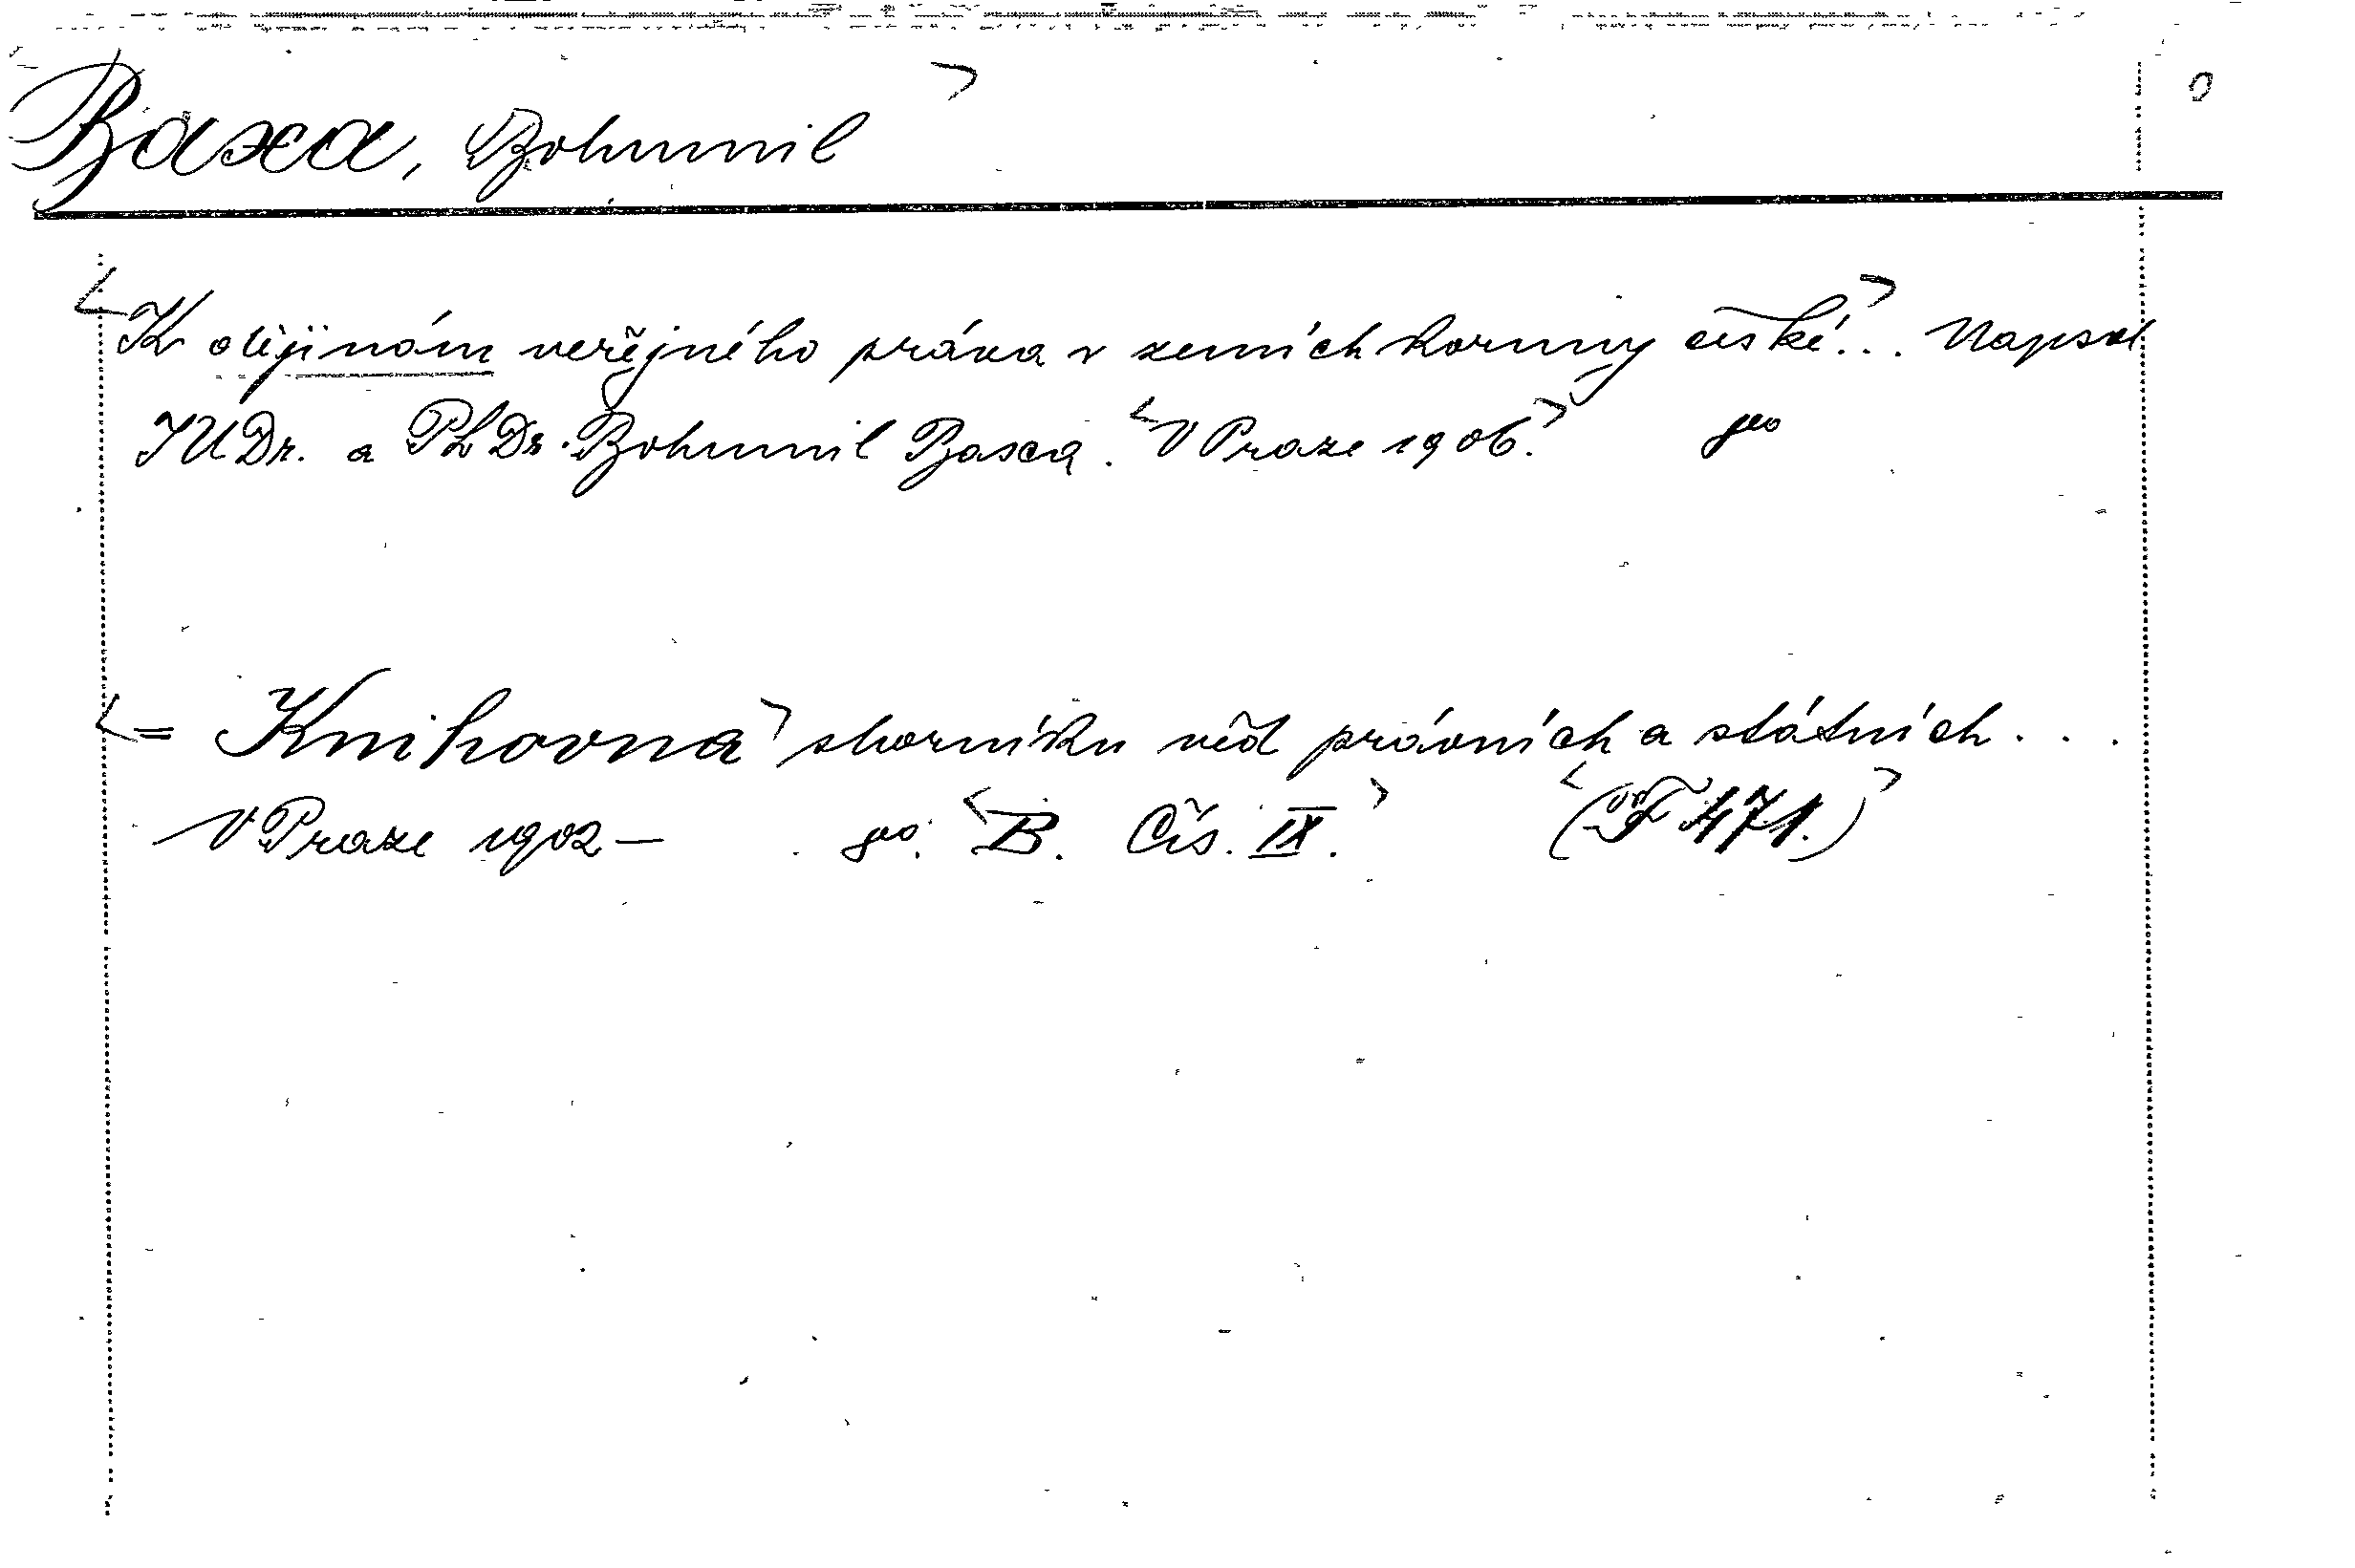 Baxa, Bohumil
K dějinám veřejného práva v zemích koruny české... Napsal
JUDr. a PhDr. Bohumil Baxa. V Praze 1906.
= Knihovna sborníku věd právních a státních...
V Praze 1902— B. Čís. IX. (F 471.)